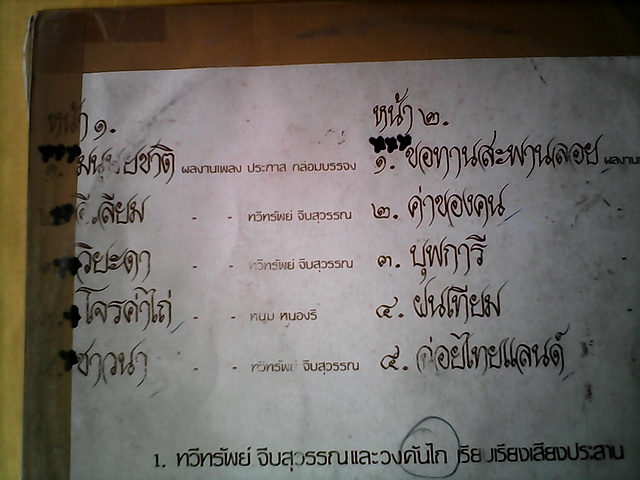 หน้า ๑.
๑. มนุษยชาติ ผลงานเพลง ประภาส กล่อมบรรจง
เสียม - - ทวีทรัพย์ จีบสุวรรณ
วิยะดา - - ทวีทรัพย์ จีบสุวรรณ
โจรค่าไถ่ - - หนุ่ม หนองรี
ชาวนา - - ทวีทรัพย์ จีบสุวรรณ
หน้า ๒.
๑. ขอทานสะพานลอย ผลงาน
๒. ค่าของคน
๓. บุพการี
๔. ฝนเทียม
๕. ด่อยไทยแลนด์
1. ทวีทรัพย์ จีบสุวรรณและวงคันไถ เรียบเรียงเสียงประสาน